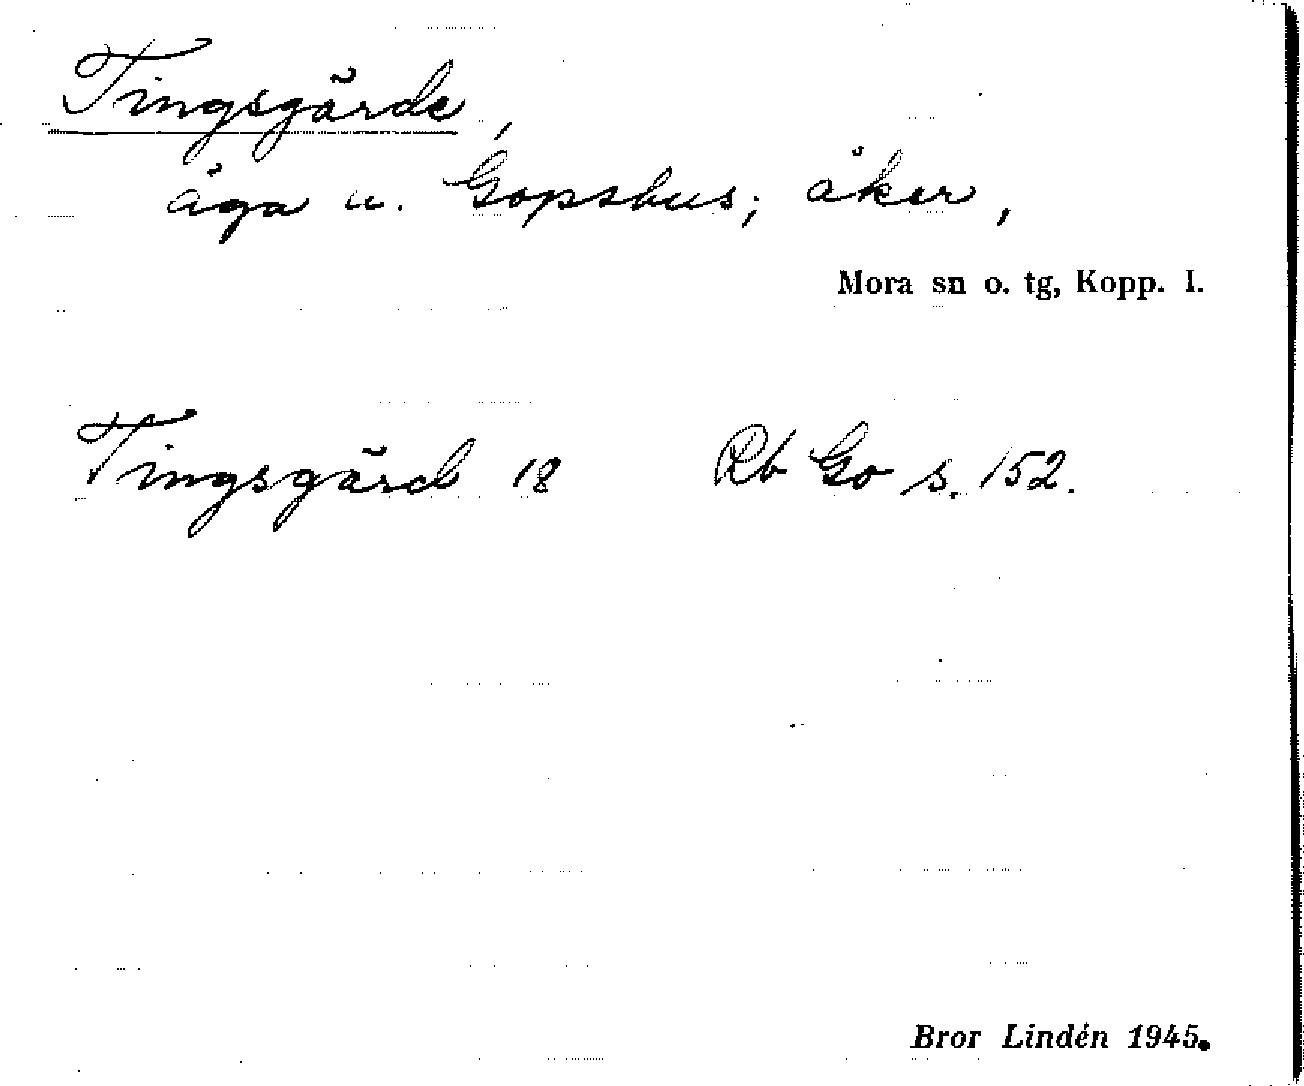 Tingsgärde,
äga u. Gopshus; åker,
Mora sn o. tg, Kopp. l.
Tingsgärd 18 Rb Go s. 152.
Bror Lindén 1945.